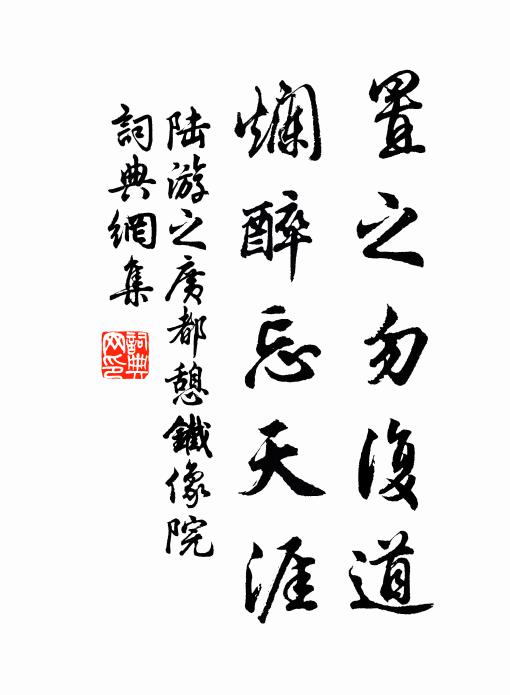 置之勿復道
爛醉忘天涯
陸游之廣都憩鐵像院
詞典網集
詞典
网印